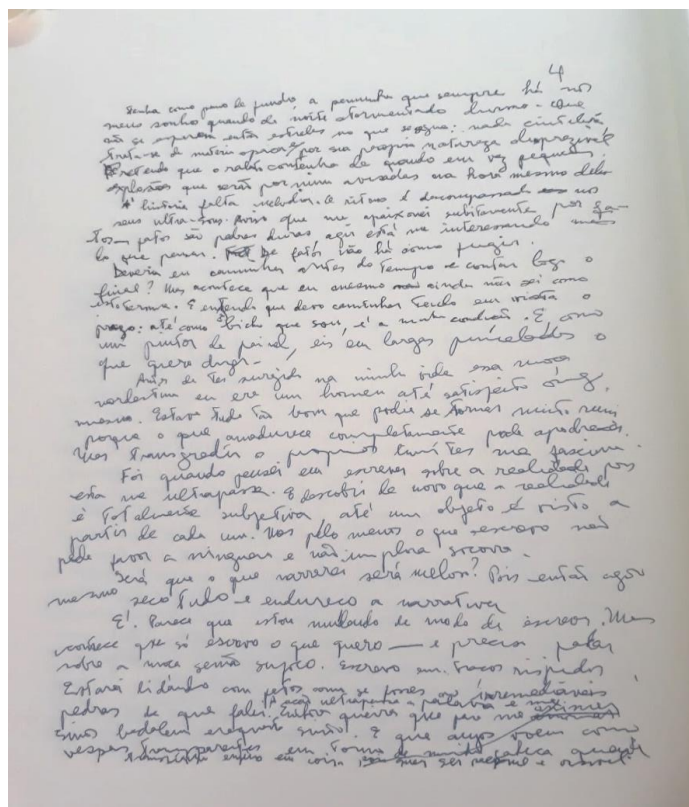 4
Tenha como pano de fundo a penumbra que sempre há nos
meus sonho quando de noite atormentado durmo. Que
não se esperem então estrelas no que segue: nada cintilará
trata-se de matéria opaca por sua propria natureza desprezível
Pretendo que o relato contenha de quando em vez pequenas
explosões que serão por mim avisadas na hora mesmo delas
A história falta melodia. O ritmo é descompassado nos
seus ultra-sons. Aviso que me apaixonei subitamente por fa-
tos. fatos são pedras duras agir está me interessando mais
do que pensar. De fatos não há como fugir.
Deveria eu caminhar antes do tempo e contar logo o
final? Mas acontece que eu mesmo ainda não sei como
isto termina. E entendo que devo caminhar tendo em vista o
prazo: até como bicho que sou, é a minha condição. E como
um pintor de painel, eis em largas pinceladas o
que quero dizer —
Antes de ter surgido na minha vida essa moça
nordestina eu era um homem até satisfeito
mesmo. Estava tudo tão bom que podia se tornar muito ruim
porque o que amadurece completamente pode apodrecer.
Mas transgredir o próprios limites me fascina.
Foi quando pensei em escrever sobre a realidade pois
esta me ultrapassa. E descobri de novo que a realidade
é totalmente subjetiva, até um objeto é visto a
partir de cada um. Mas pelo menos o que escrevo não
pede favor a ninguem e não implora socorro.
Será que o que narrarei será melon? Pois então agora
mesmo seco tudo e endureço a narrativa
É. Parece que estou mudando de modo de escrever. Mas
acontece que só escrevo o que quero — e preciso falar
sobre a moça senão sufoco. Escrevo em traços ríspidos
Estarei lidando com fatos como se fossem as irremediáveis
pedras de que falei. A ação ultrapassa a palavra e
Embora queira que pra me
sinos badalem enquanto E que anjos voem como
vespas transparentes em torno de cabeça quente
transformar em coisa